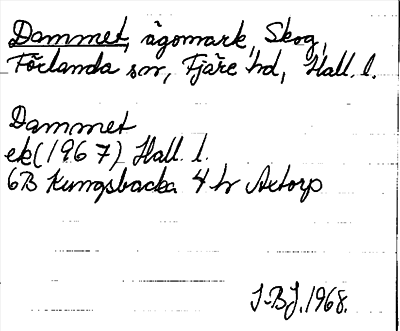 Dammet, ägomark, Skog,
Förlanda sn, Fjäre hd, Hall. l.
Dammet
ek (1967) Hall. l.
6B Kungsbacka 4h Axtorp
I-BJ. 1968.